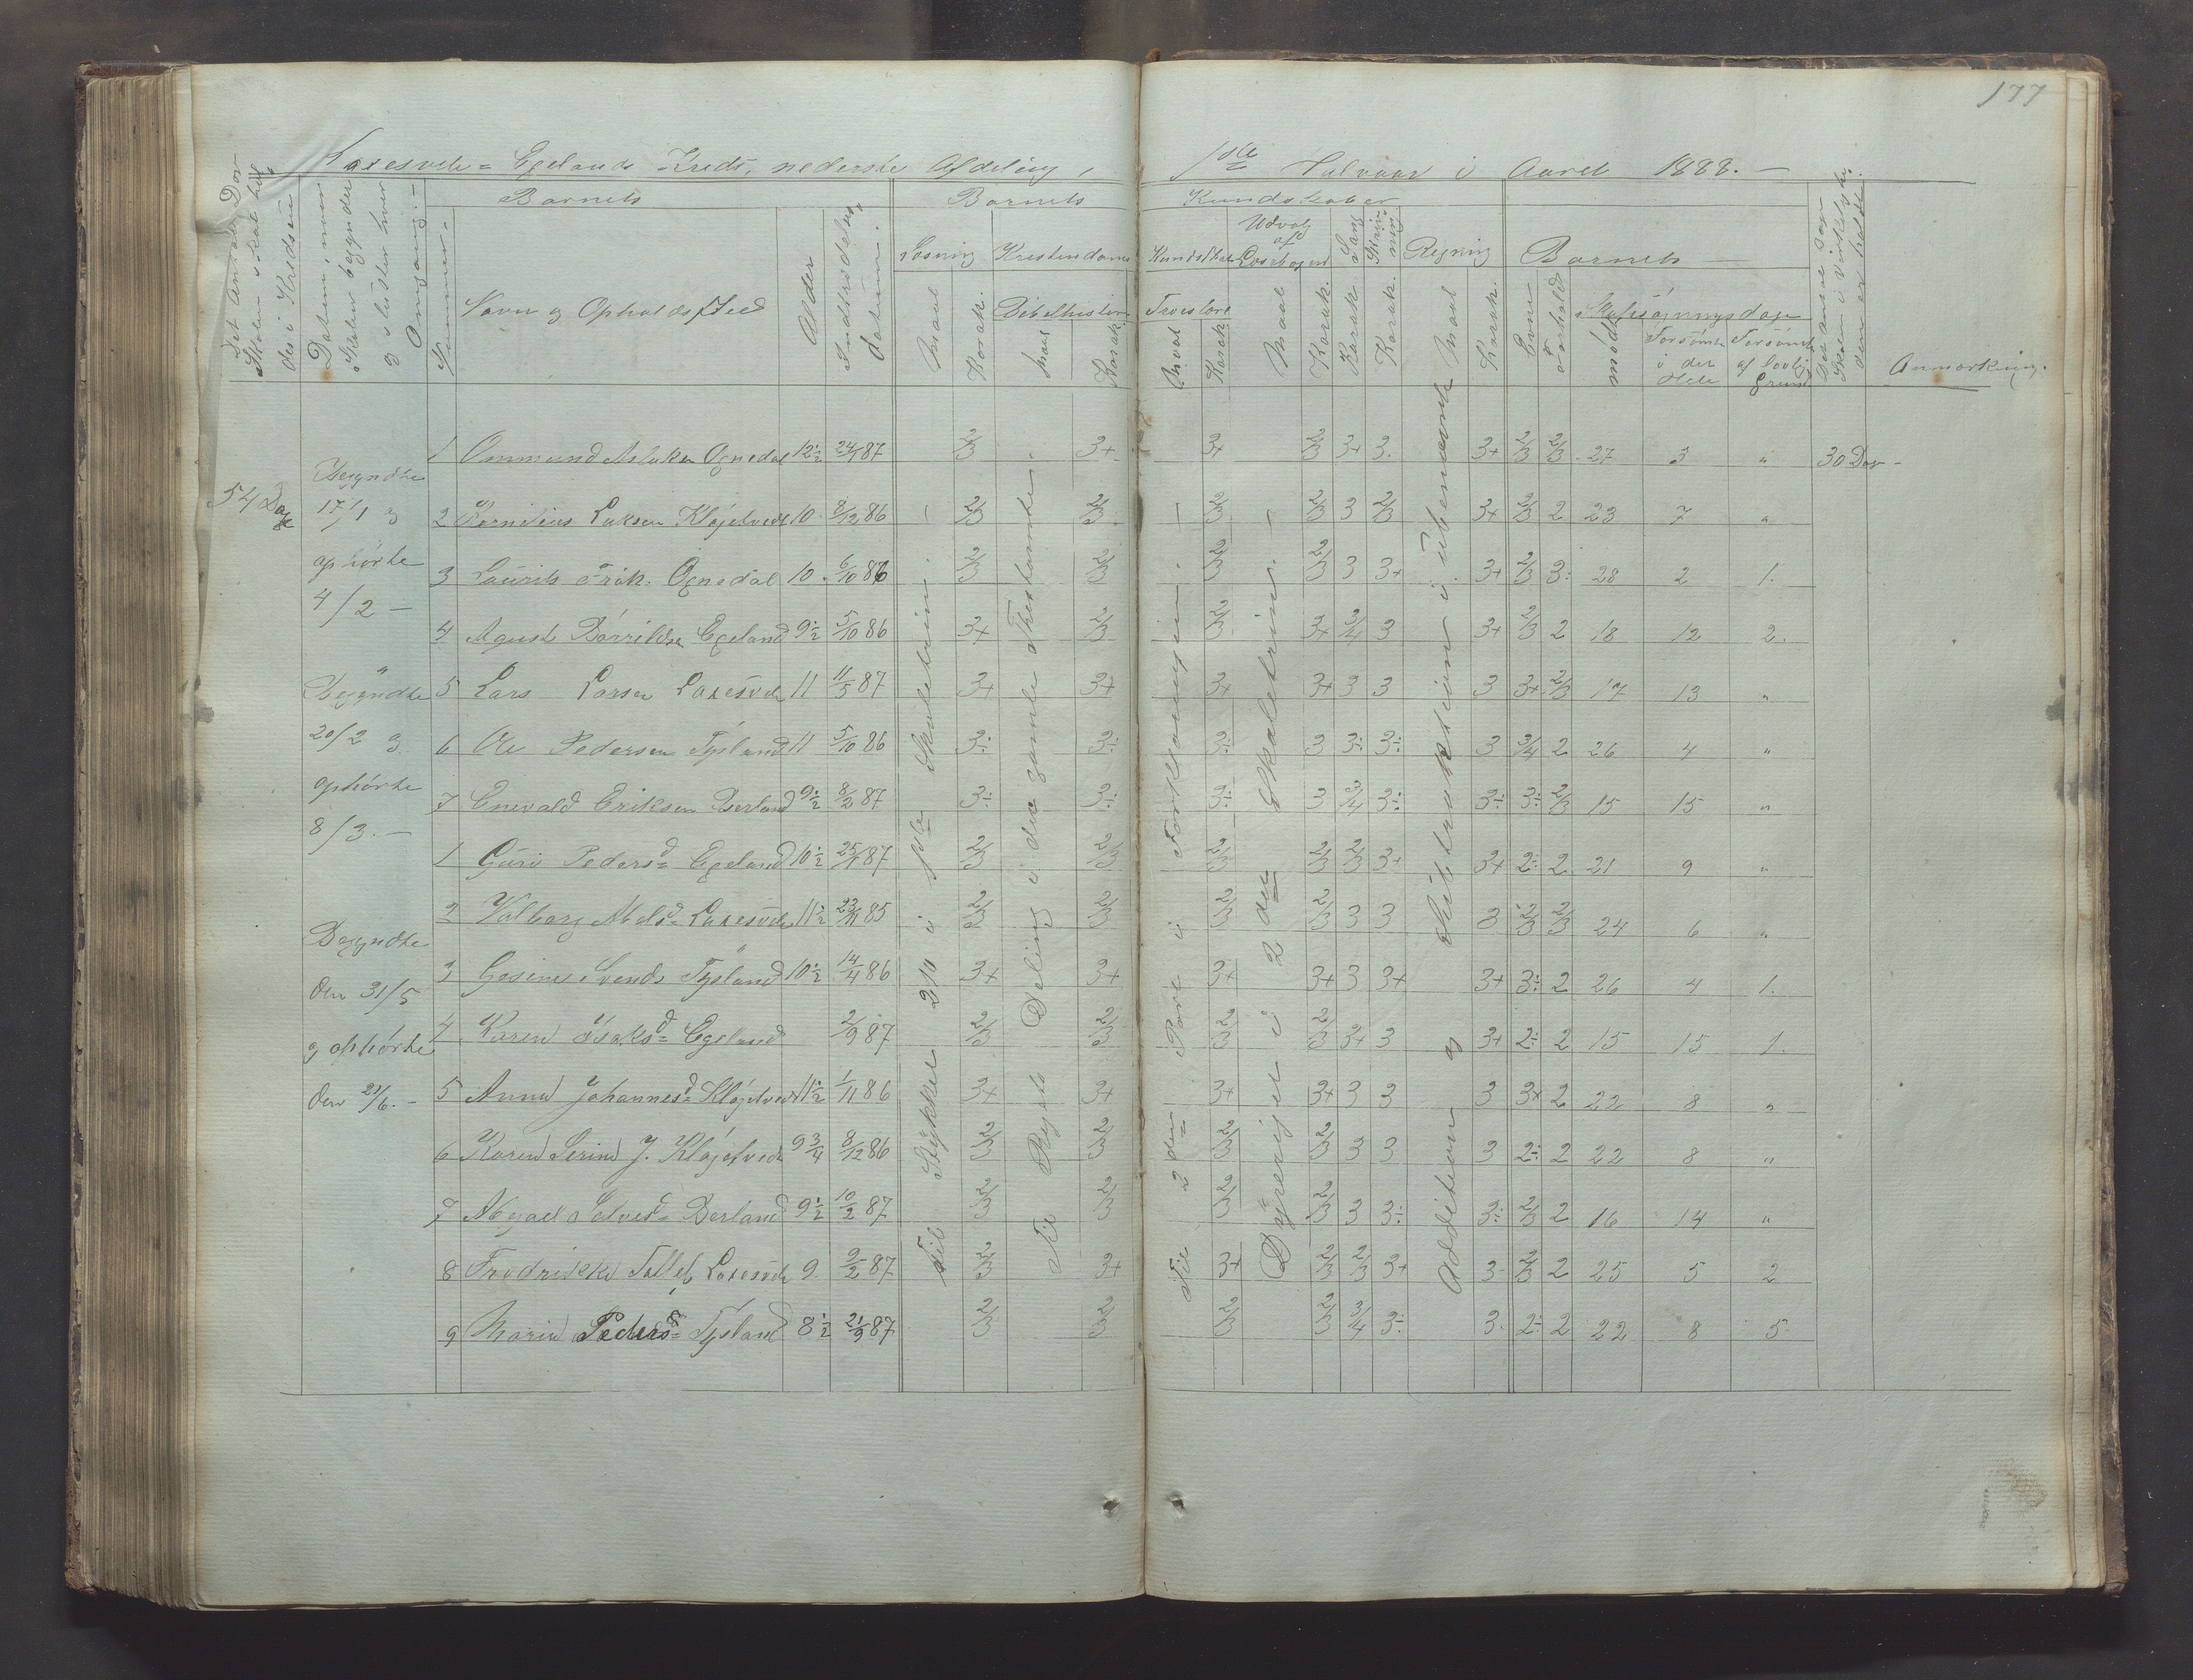 177
Laxesvele = Egelands Kreds, nederste Afdeling, 1ste Halvaar i Aaret 1888. —
Det Antal Dage Skolen skal holdes i Kredsen
Datum, naar Skolen begynder og slutter hver Omgang. —
Barnets
Nummer. —
Navn og Opholdssted
Alder
Indtrædelses datum.
Barnets Kundskaber
Læsning
Maal
Karak.
Kristendoms Kundskab
Bibelhistorie
Maal
Karak.
Troeslære
Maal
Karak.
Udvalg af Læsebogen
Maal
Karak.
Sang
Karak.
Skrivning
Karak.
Regning
Maal
Karak.
Barnets
Evne
Forhold
Skolesøgningsdage
mødte
Forsømte i det Hele
Forsømte af lovlig Grund
Det Antal Dage Skolen i Virkelighe. den er holdt
Anmærkning.
54 Dage
Begyndte
17/1 og
ophørte
4/2 —
Begyndte
20/2 og
ophørte
8/3. —
Begyndte
den 31/5
og ophørte
den 21/6. —
til Stykket 210 i 1ste Skoletrin. —
Til Rigets Deling i det gamle Testamente.
Til 2den Part i Forklaringen. —
Dyreriget i 2det Skoletrin. —
Addition og Subtraktion i ubenævnte
1 Ommund Aslaksen Ognedal 12½ 24/1 87 2/3 3+ 3+ 2/3 3+ 3. 3+ 2/3 2/3 27 3 " 30 Dage
2 Bernitius Laksen Kløgetvedt 10 8/12 86 2/3 2/3 2/3 2/3 3 2/3 3+ 2/3 2 23 7 "
3 Laurits Frik. Ognedal 10 6/10 86 2/3 2/3 2/3 2/3 3 3+ 3+ 2/3 3: 28 2 1.
4 Agust Børrildsen Egeland 9½ 5/10 86 3+ 2/3 2/3 3+ 3/4 3 3+ 2/3 2 18 12 2.
5 Lars Larsen Laxesvele 11 11/5 87 3+ 3+ 3+ 3+ 3 3 3 3+ 2/3 17 13 "
6 Ole Pedersen Tysland 11 5/10 86 3÷ 3÷ 3÷ 3 3÷ 3÷ 3 3/4 2 26 4 "
7 Enevald Eriksen Berland 9½ 8/2 87 3÷ 3÷ 3÷ 3 3/4 3÷ 3÷ 3÷ 2/3 15 15 "
1 Guri Pedersd= Egeland 10½ 25/1 87 2/3 2/3 2/3 2/3 2/3 3+ 3+ 2÷ 2 21 9 "
2 Valborg Melsd= Laxesvele 11½ 23/11 85 2/3 2/3 2/3 2/3 3 3 3 2/3 2/3 24 6 "
3 Gesine Svends Tysland 10½ 14/4 86 3+ 3+ 3+ 3+ 3 3+ 3+ 3÷ 2 26 4 1.
4 Karen Isaksd= Egeland 2/9 87 2/3 2/3 2/3 2/3 3+ 3 3+ 2÷ 2 15 15 1.
5 Anna Johannesd= Kløgetvedt 11½ 1/11 86 3+ 3+ 3+ 3+ 3 3 3 3+ 2 22 8 "
6 Karen Serine J. Kløgetvedt 9¾ 8/12 86 2/3 2/3 2/3 2/3 3 3 3 2÷ 2 22 8 "
7 Abegael Salvesd= Berland 9½ 10/2 87 2/3 2/3 2/3 2/3 3 3÷ 3÷ 2/3 2 16 14 "
8 Fredrikke Tollefs Laxesvele 9 9/2 87 2/3 3+ 3+ 2/3 2/3 3+ 3 2/3 2 25 5 2
9 Marie Pedersd= Tysland 8½ 21/9 87 2/3 2/3 2/3 2/3 3/4 3÷ 3. 2÷ 2 22 8 5.